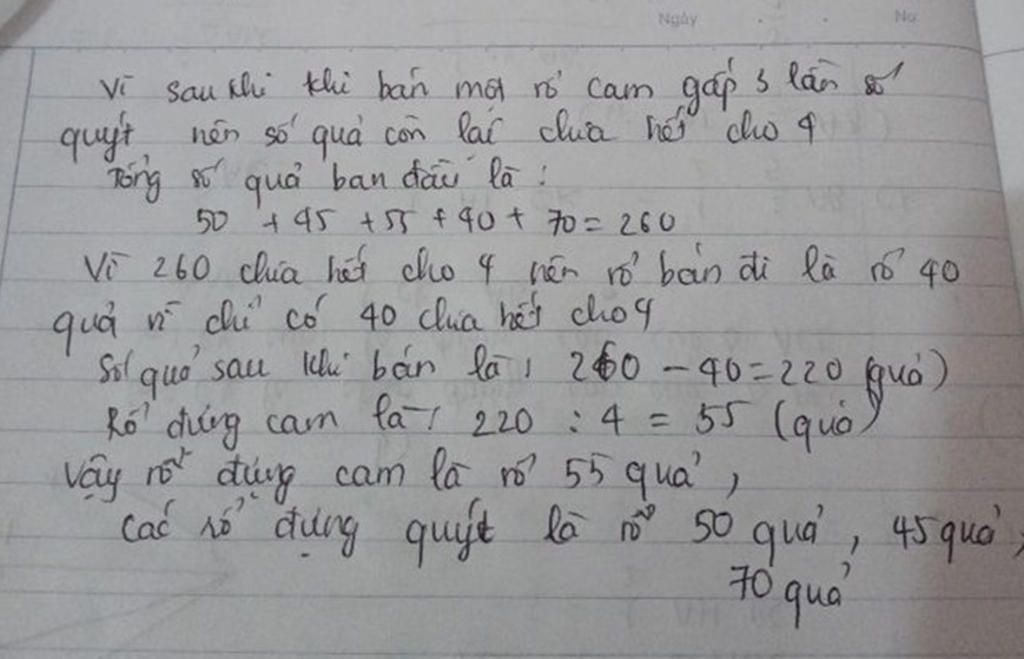 Ngày
No
Vì sau khi khi bán một rổ cam gấp 3 lần số
quýt nên số quả còn lại chia hết cho 4
Tổng số quả ban đầu là :
50 + 45 + 55 + 40 + 70 = 260
Vì 260 chia hết cho 4 nên rổ bán đi là rổ 40
quả vì chỉ có 40 chia hết cho 4
Số quả sau khi bán là : 260 - 40 = 220 (quả)
Rổ đựng cam là : 220 : 4 = 55 (quả)
Vậy rổ đựng cam là rổ 55 quả ,
Các rổ đựng quýt là rổ 50 quả , 45 quả ,
70 quả